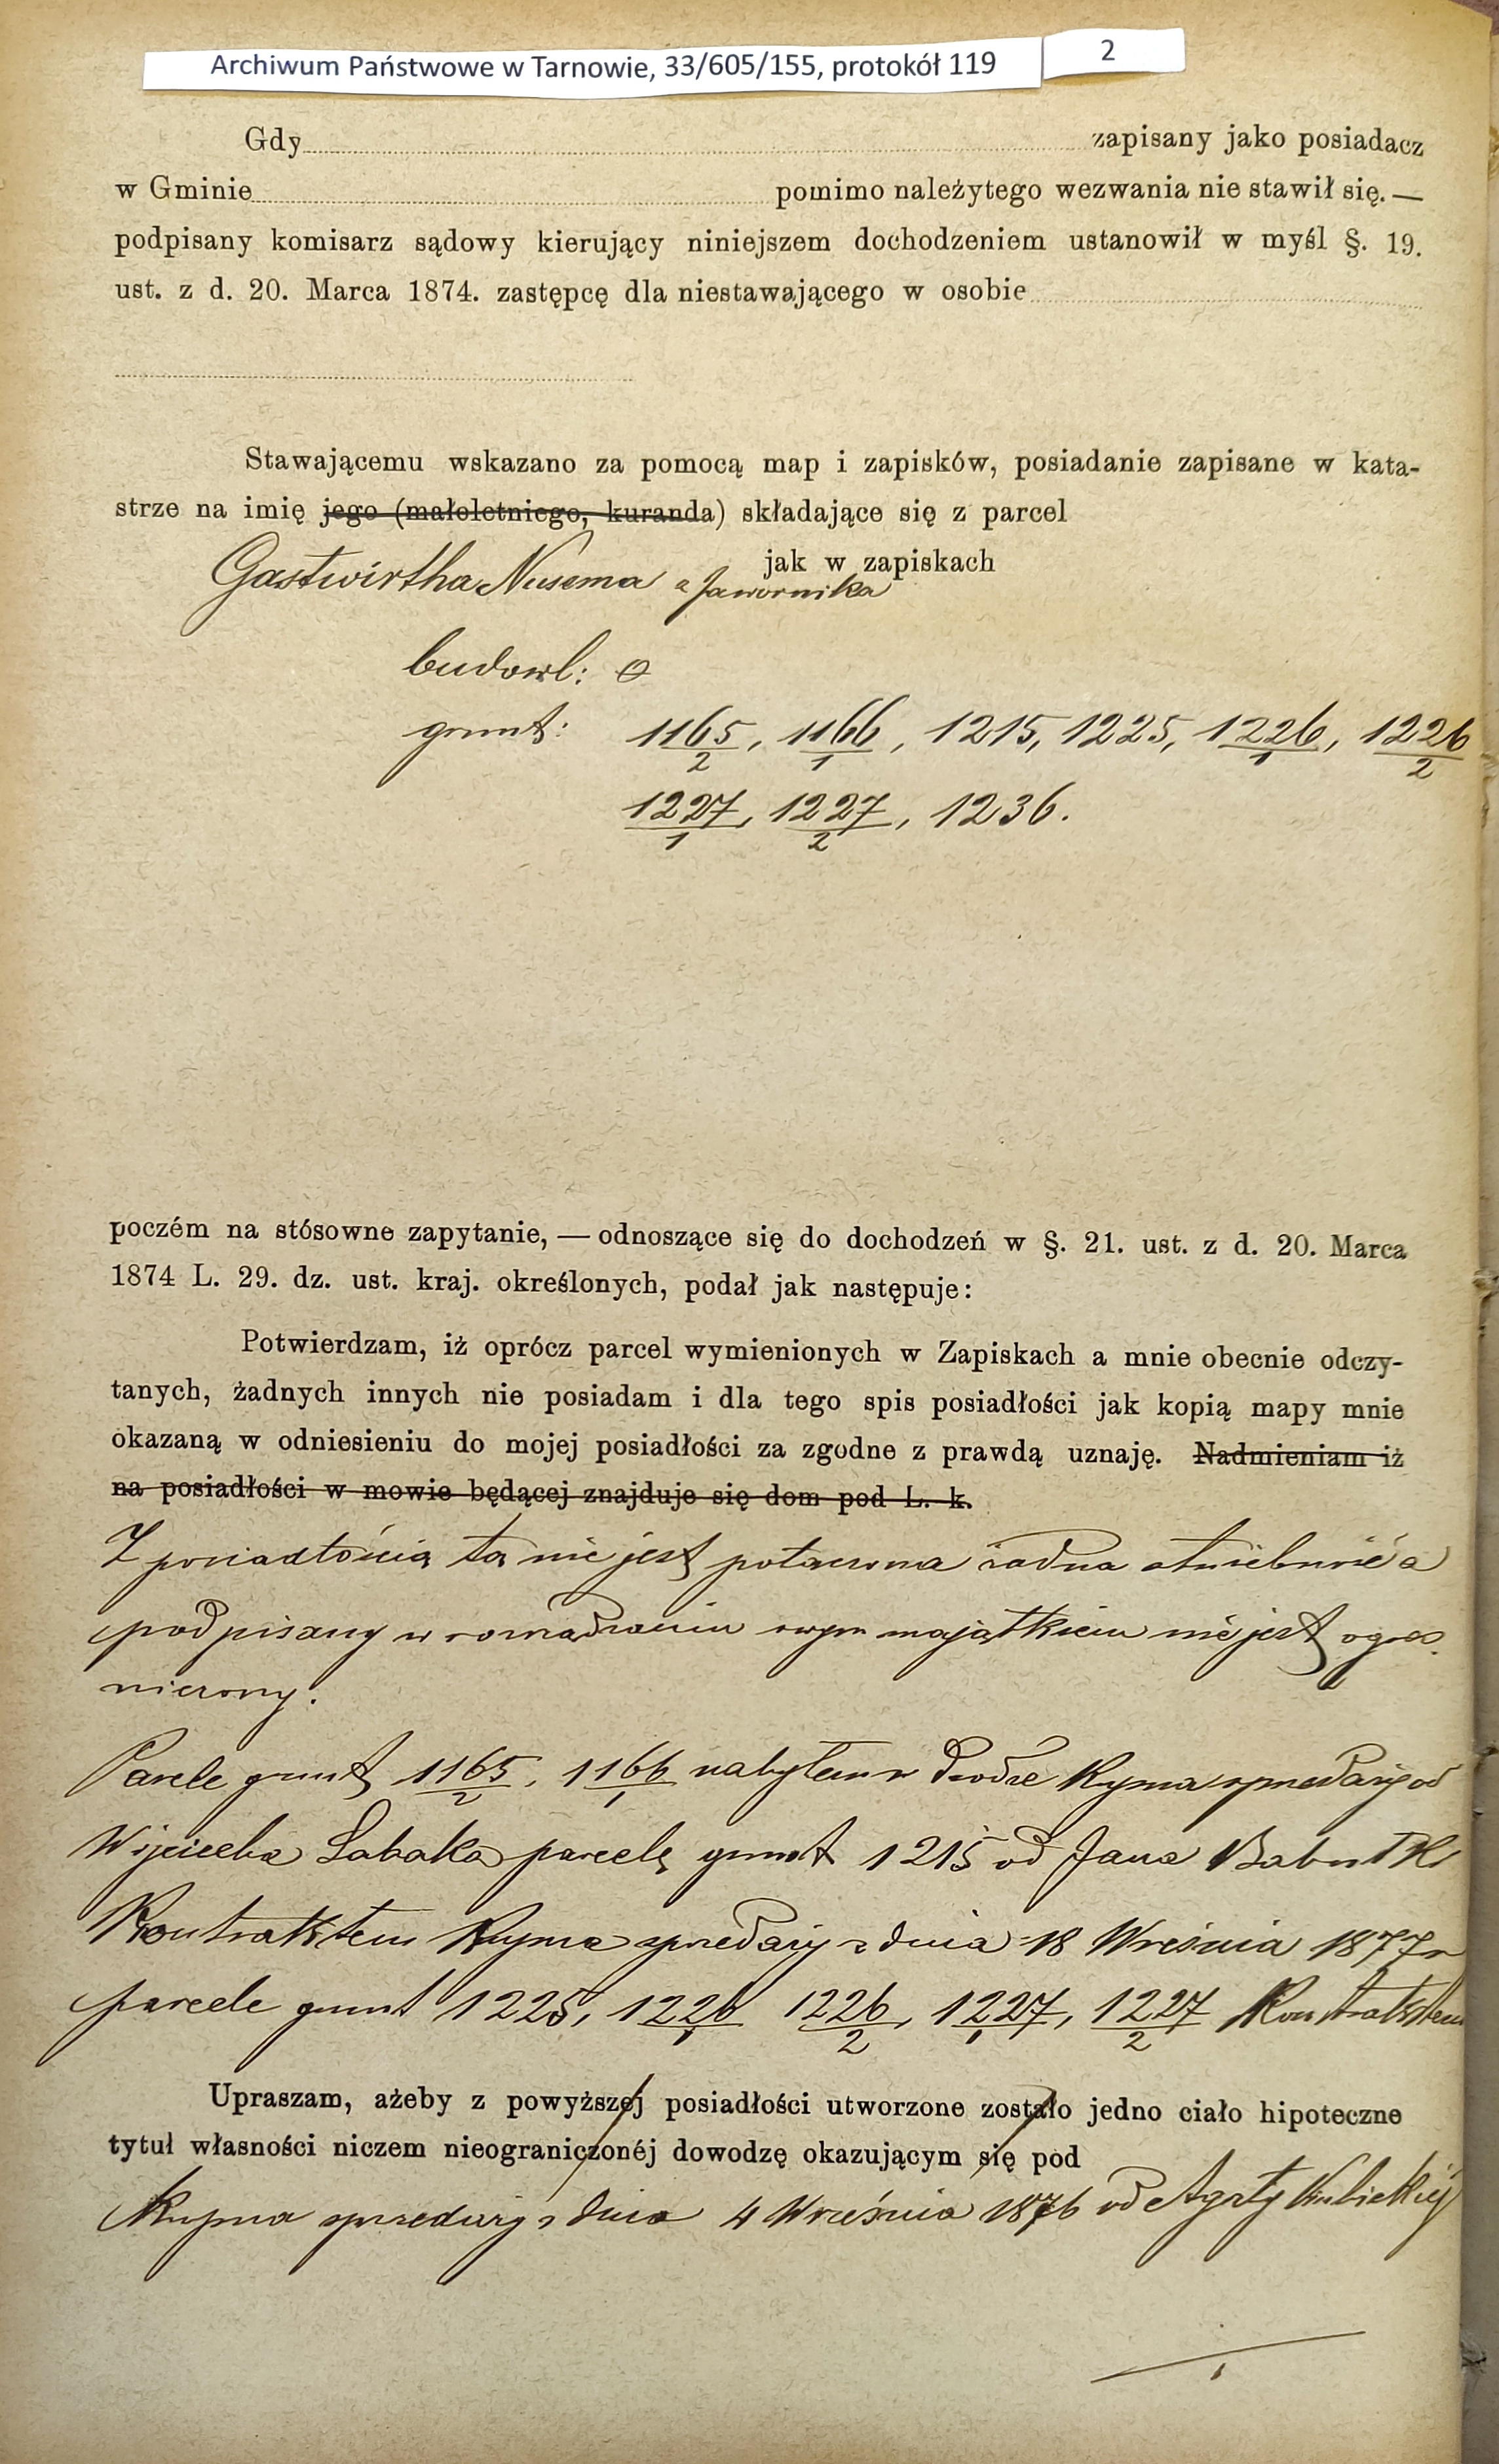 Archiwum Państwowe w Tarnowie, 33/605/155, protokół 119
2
Gdy zapisany jako posiadacz
w Gminie pomimo należytego wezwania nie stawił się. —
podpisany komisarz sądowy kierujący niniejszem dochodzeniem ustanowił w myśl §. 19.
ust. z d. 20. Marca 1874. zastępcę dla niestawającego w osobie
Stawającemu wskazano za pomocą map i zapisków, posiadanie zapisane w kata-
strze na imię jego (małoletniego, kuranda) składające się z parcel
jak w zapiskach
Gastwirtha Nusema z Jawornika
budowl: 0
grunt: 1165/2, 1166/1, 1215, 1225, 1226/1, 1226/2
1227/1, 1227/2, 1236.
poczém na stósowne zapytanie, — odnoszące się do dochodzeń w §. 21. ust. z d. 20. Marca
1874 L. 29. dz. ust. kraj. określonych, podał jak następuje:
Potwierdzam, iż oprócz parcel wymienionych w Zapiskach a mnie obecnie odczy-
tanych, żadnych innych nie posiadam i dla tego spis posiadłości jak kopią mapy mnie
okazaną w odniesieniu do mojej posiadłości za zgodne z prawdą uznaję. Nadmieniam iż
na posiadłości w mowie będącej znajduje się dom pod L. k.
Z posiadłością tą nie jest połączona żadna służebność a
podpisany w zarządzaniu swym majątkiem nie jest ogra-
niczony.
Parcele grunt 1165/2, 1166/1 nabyłem w drodze kupna sprzedaży od
Wojciecha Sabaka parcelę grunt 1215 od Jana
Kontraktem kupna sprzedaży z dnia 18 Września 1877 r
parcele grunt 1225, 1226/1 1226/2, 1227/1, 1227/2 Kontraktem
Upraszam, ażeby z powyższej posiadłości utworzone zostało jedno ciało hipoteczne
tytuł własności niczem nieograniczonéj dowodzę okazującym się pod
Kupna sprzedaży z dnia 4 Września 1876 od Agaty Kubickiéj